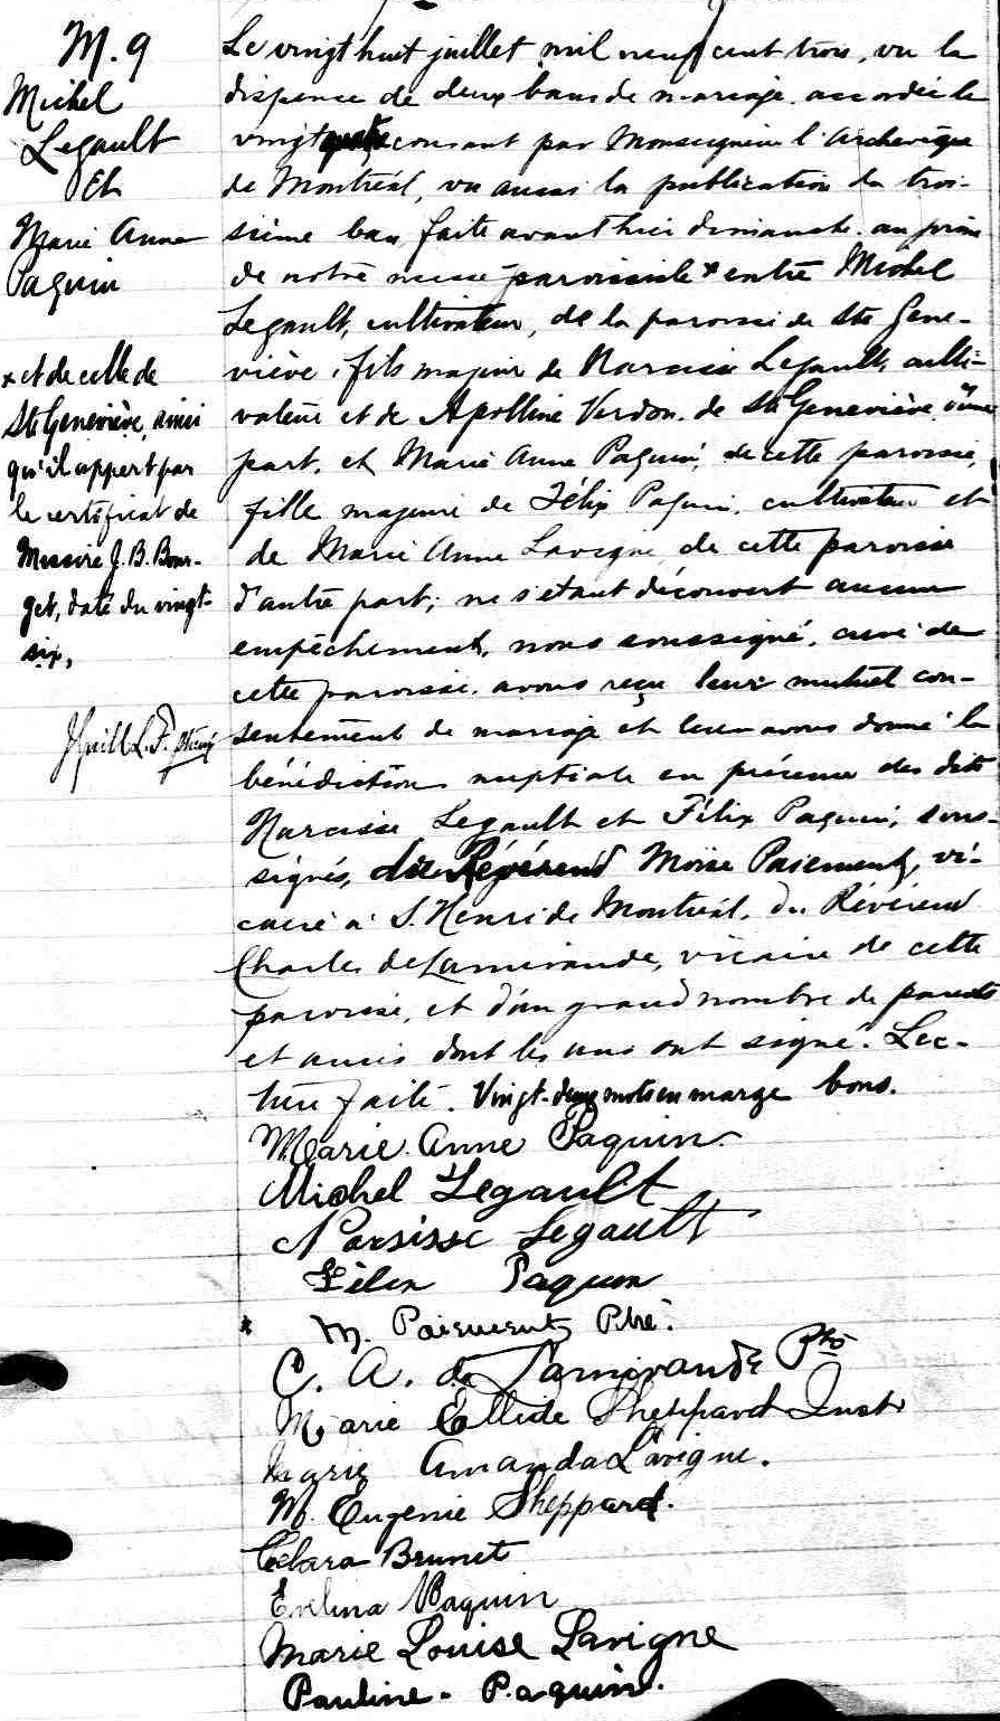 M. 9
Michel
Legault
Et
Marie Anne
Paquin
x et de celle de
Ste Geneviève, ainsi
qu'il appert par
le certificat de
Messire J. B. Bour-
get, daté du vingt-
six,
Le vingt huit juillet mil neuf cent trois, vu la
dispense de deux bans de mariage accordée le
vingt quatre courant par Monseigneur l'Archevêque
de Montréal, vu aussi la publication du troi-
sième ban faite avant hier dimanche au prône
de notre messe paroissiale x entre Michel
Legault, cultivateur, de la paroisse de Ste Gene-
viève, fils majeur de Narcisse Legault, culti-
vateur et de Apolline Verdon, de Ste Geneviève d'une
part, et Marie Anne Paquin, de cette paroisse,
fille majeure de Félix Paquin, cultivateur et
de Marie Anne Lavigne de cette paroisse
d'autre part; ne s'étant découvert aucun
empêchement, nous soussigné, curé de
cette paroisse, avons reçu leur mutuel con-
sentement de mariage et leur avons donné la
bénédiction nuptiale en présence des dits
Narcisse Legault et Félix Paquin, sous-
signés, du Révérend Moïse Paiement, vi-
caire à S. Henri de Montréal, du Révérend
Charles de Lamirande, vicaire de cette
paroisse, et d'un grand nombre de parents
et amis dont les uns ont signé. Lec-
ture faite. Vingt-deux mots en marge bons.
Marie Anne Paquin
Michel Legault
Narsisse Legault
Félix Paquin
M. Paiement, Ptre.
C. A. de Lamirande Ptre
Marie Ellide Sheppard Inst.
Marie Amanda Lavigne.
M. Eugenie Sheppard.
Clara Brunet
Evelina Paquin
Marie Louise Lavigne
Pauline Paquin.